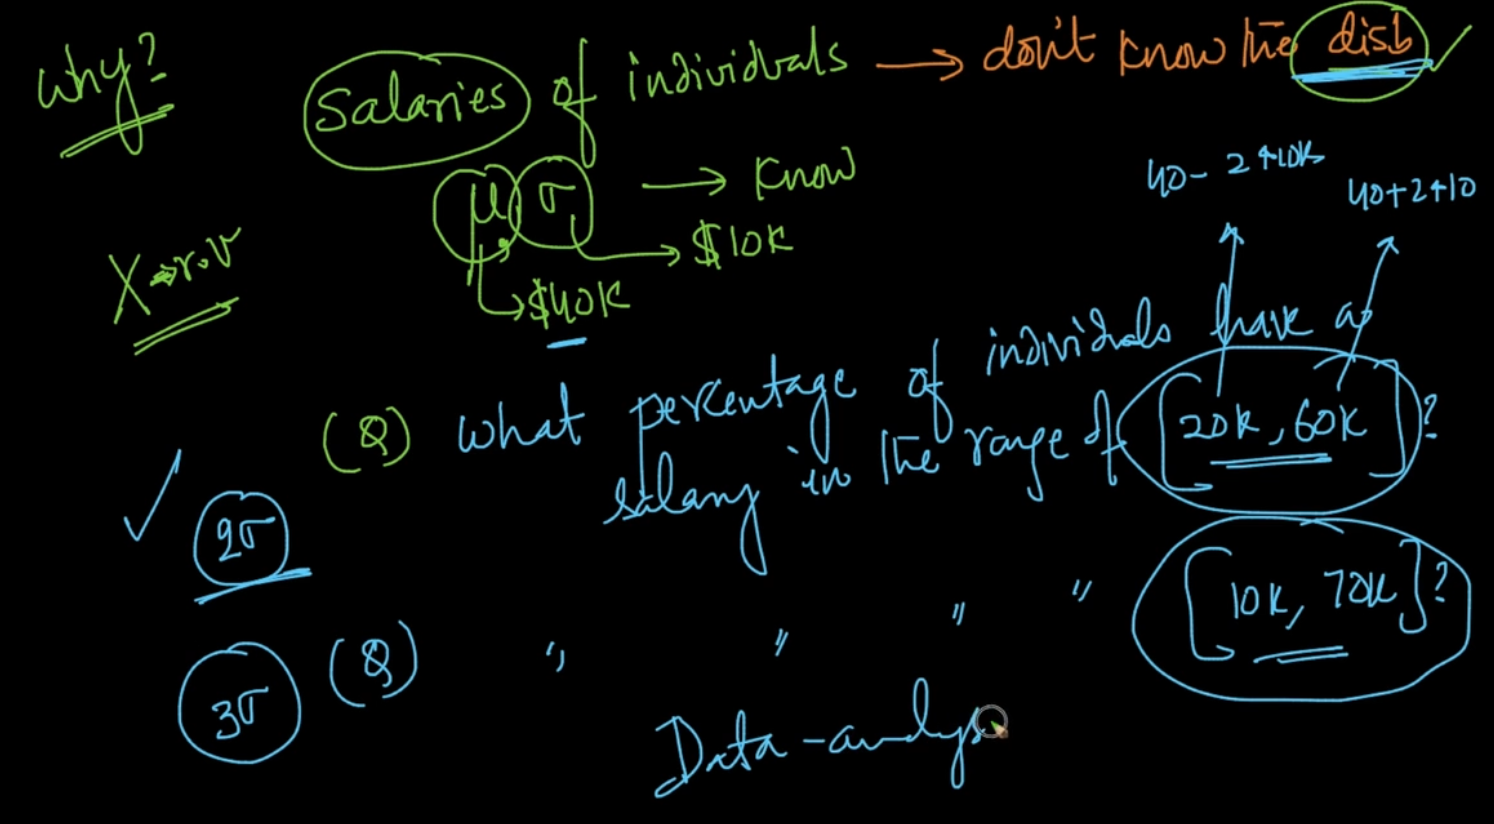 Why?
Salaries of individuals → don't know the dist
μ, σ → know
X → r.v
$10K
$40K
40 - 2*10K
40+2*10
(Q) What percentage of individuals have a
salary in the range of [20K, 60K]?
2σ
3σ (Q) " " " " [10K, 70K]?
Data-analys